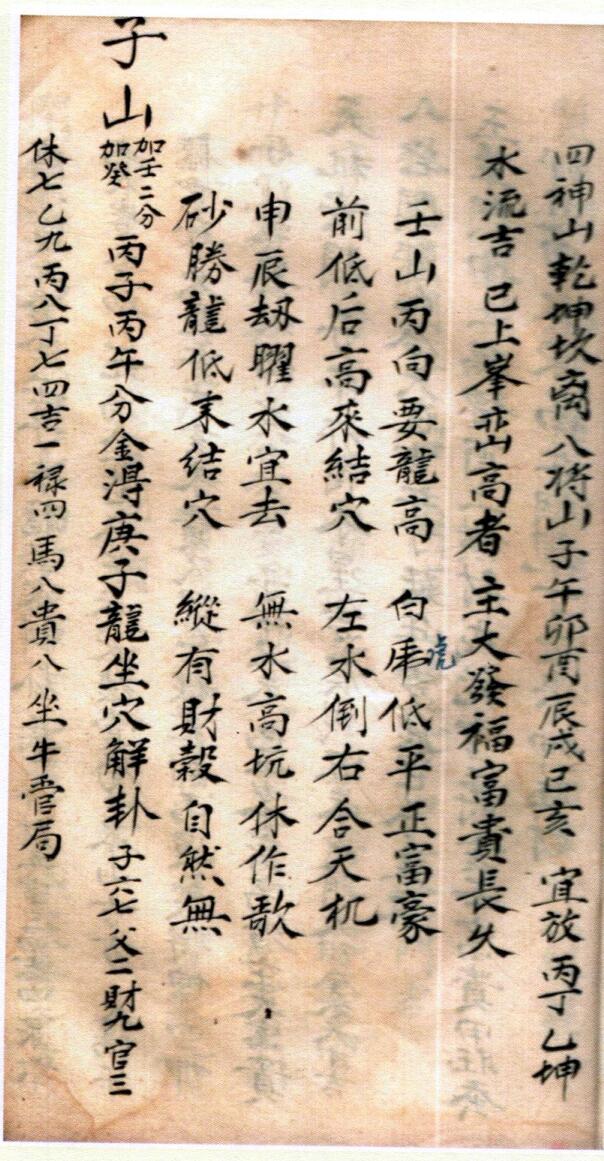 四神山乾坤坎离八将山子午卯酉辰戌巳亥 宜放丙丁乙坤
水流吉 已上峯峦高者 主大發福富貴長久
壬山丙向要龍高 白虎低平正富豪
虎
前低后高來結穴 左水倒右合天机
申辰劫曜水宜去 無水高坑休作歌
砂勝龍低末結穴 縱有財穀自然無
子山 加壬二分 加癸 丙子丙午分金淂庚子龍坐穴解卦 子六七父二財九官三
休七乙九丙八丁七四吉一禄四馬八貴八坐牛 局